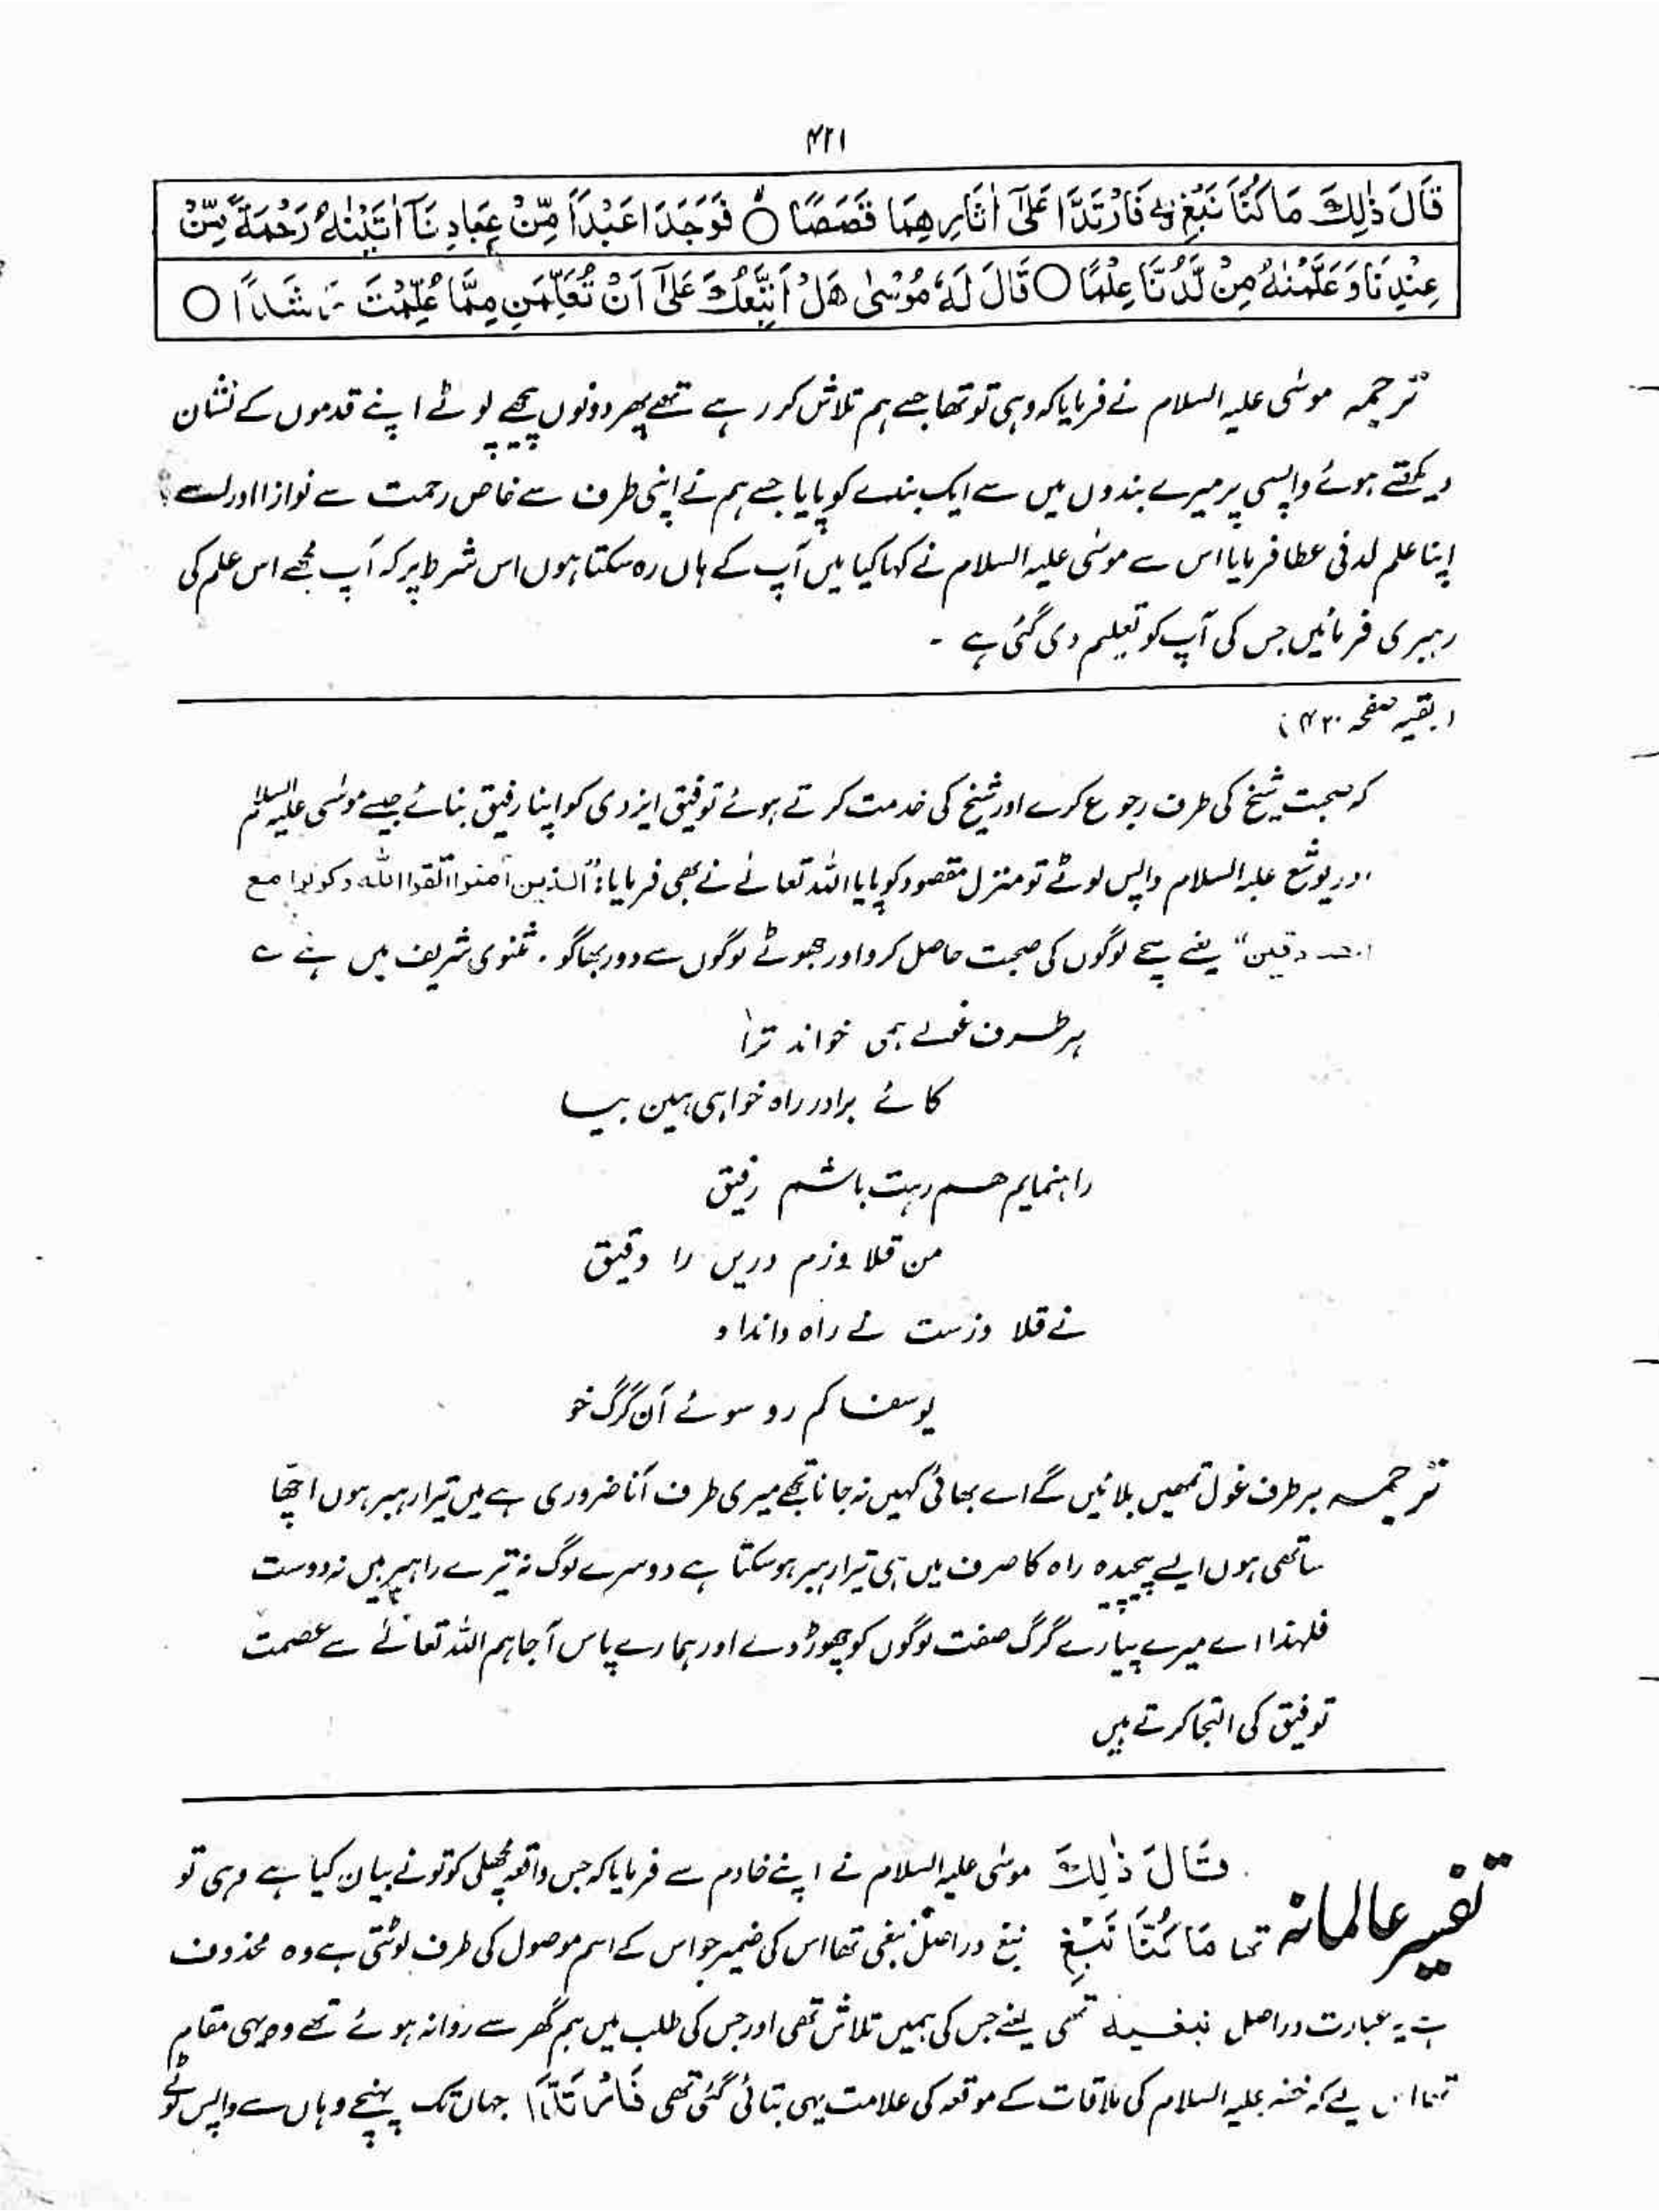 ۴۲۱
قَالَ ذٰلِكَ مَا كُنَّا نَبْغِ ۖ فَارْتَدَّا عَلٰٓى اٰثَارِهِمَا قَصَصًا ۝ فَوَجَدَا عَبْدًا مِّنْ عِبَادِنَآ اٰتَيْنٰهُ رَحْمَةً مِّنْ
عِنْدِنَا وَعَلَّمْنٰهُ مِنْ لَّدُنَّا عِلْمًا ۝ قَالَ لَهٗ مُوْسٰى هَلْ اَتَّبِعُكَ عَلٰٓى اَنْ تُعَلِّمَنِ مِمَّا عُلِّمْتَ رُشْدًا ۝
ترجمہ موسٰی علیہ السلام نے فرمایا کہ وہی تو تھا جسے ہم تلاش کر رہے تھے پھر دونوں پیچھے لوٹے اپنے قدموں کے نشان
دیکھتے ہوئے واپسی پر میرے بندوں میں سے ایک بندے کو پایا جسے ہم نے اپنی طرف سے خاص رحمت سے نوازا اور اسے
اپنا علم لدنی عطا فرمایا اس سے موسٰی علیہ السلام نے کہا کیا میں آپ کے ہاں رہ سکتا ہوں اس شرط پر کہ آپ مجھے اس علم کی
رہبری فرمائیں جس کی آپ کو تعلیم دی گئی ہے ۔
(بقیہ صفحہ ۴۲۰)
کہ صحبت شیخ کی طرف رجوع کرے اور شیخ کی خدمت کرتے ہوئے توفیق ایزدی کو اپنا رفیق بنائے جیسے موسٰی علیہ السلام
اور یوشع علیہ السلام واپس لوٹے تو منزل مقصود کو پایا اللہ تعالےٰ نے بھی فرمایا : الذین آمنوا اتقوا اللہ وکونوا مع
الصدقین“ یعنے سچے لوگوں کی صحبت حاصل کرو اور جھوٹے لوگوں سے دور بھاگو ۔ مثنوی شریف میں ہے ؎
ہر طرف غولے ہمی خواند ترا
کائے برادر راہ خواہی ہین بیا
راہنمایم ہم رہت باشم رفیق
من قلاوزم دریں را دقیق
نے قلاوزست نے راہ داند او
یوسفا کم رو سوئے آن گرگ خو
ترجمہ ہر طرف غول تمھیں بلائیں گے اے بھائی کہیں نہ جانا تجھے میری طرف آنا ضروری ہے میں تیرا رہبر ہوں اچھا
ساتھی ہوں ایسے پیچیدہ راہ کا صرف میں ہی تیرا رہبر ہو سکتا ہے دوسرے لوگ نہ تیرے راہبر ہیں نہ دوست
فلہذا اے میرے پیارے گرگ صفت لوگوں کو چھوڑ دے اور ہمارے پاس آ جا ہم اللہ تعالےٰ سے عصمت
توفیق کی التجا کرتے ہیں
تفسیر عالمانہ
قَالَ ذٰلِكَ موسٰی علیہ السلام نے اپنے خادم سے فرمایا کہ جس واقعہ مچھلی کو تو نے بیان کیا ہے وہی تو
تھا مَا كُنَّا نَبْغِ نبغ دراصل نبغی تھا اس کی ضمیر جو اس کے اسم موصول کی طرف لوٹتی ہے وہ محذوف
ہے یہ عبارت دراصل نبغیہ تھی یعنے جس کی ہمیں تلاش تھی اور جس کی طلب میں ہم گھر سے روانہ ہوئے تھے وہی مقام
تھا اس لیے کہ خضر علیہ السلام کی ملاقات کے موقعہ کی علامت یہی بتائی گئی تھی فَارْتَدَّا جہاں تک پہنچے وہاں سے واپس لوٹے